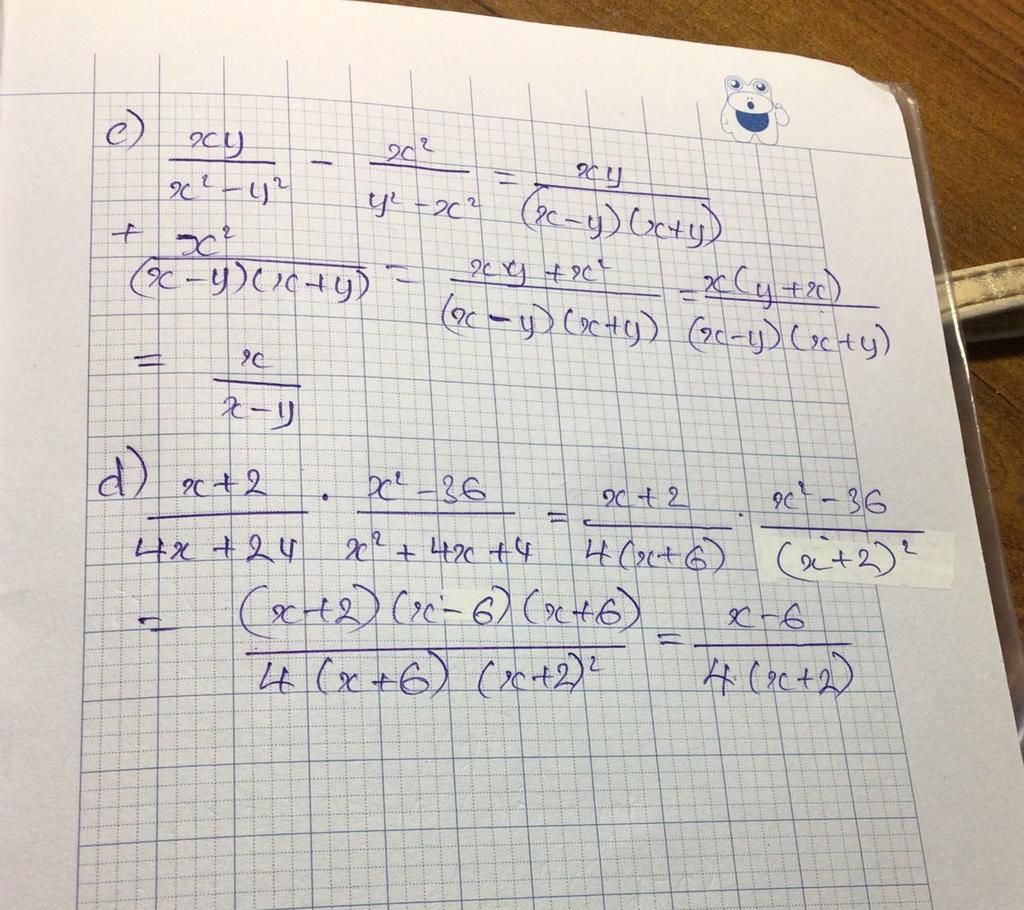 c) \frac{xy}{x² - y²} - \frac{x²}{y² - x²} = \frac{xy}{(x-y)(x+y)}
+ \frac{x²}{(x-y)(x+y)} = \frac{xy + x²}{(x-y)(x+y)} = \frac{x(y+x)}{(x-y)(x+y)}
= \frac{x}{x-y}
d) \frac{x+2}{4x+24} . \frac{x² - 36}{x² + 4x + 4} = \frac{x+2}{4(x+6)} . \frac{x² - 36}{(x+2)²}
= \frac{(x+2)(x-6)(x+6)}{4(x+6)(x+2)²} = \frac{x-6}{4(x+2)}